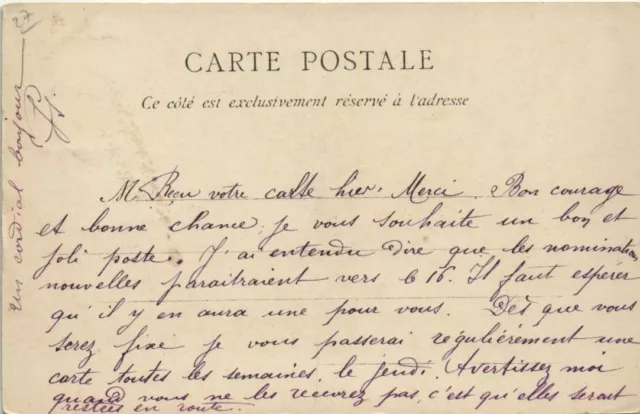 27
CARTE POSTALE
Ce côté est exclusivement réservé à l'adresse
un cordial bonjour
M. Reçu votre carte hier. Merci. Bon courage
et bonne chance, je vous souhaite un bon et
joli poste. J'ai entendu dire que les nominations
nouvelles paraitraient vers le 16. Il faut espérer
qu'il y en aura une pour vous. Dès que vous
serez fixé je vous passerai régulièrement une
carte toutes les semaines, le jeudi. Avertissez moi
quand vous ne les recevrez pas, c'est qu'elles seront
restées en route.